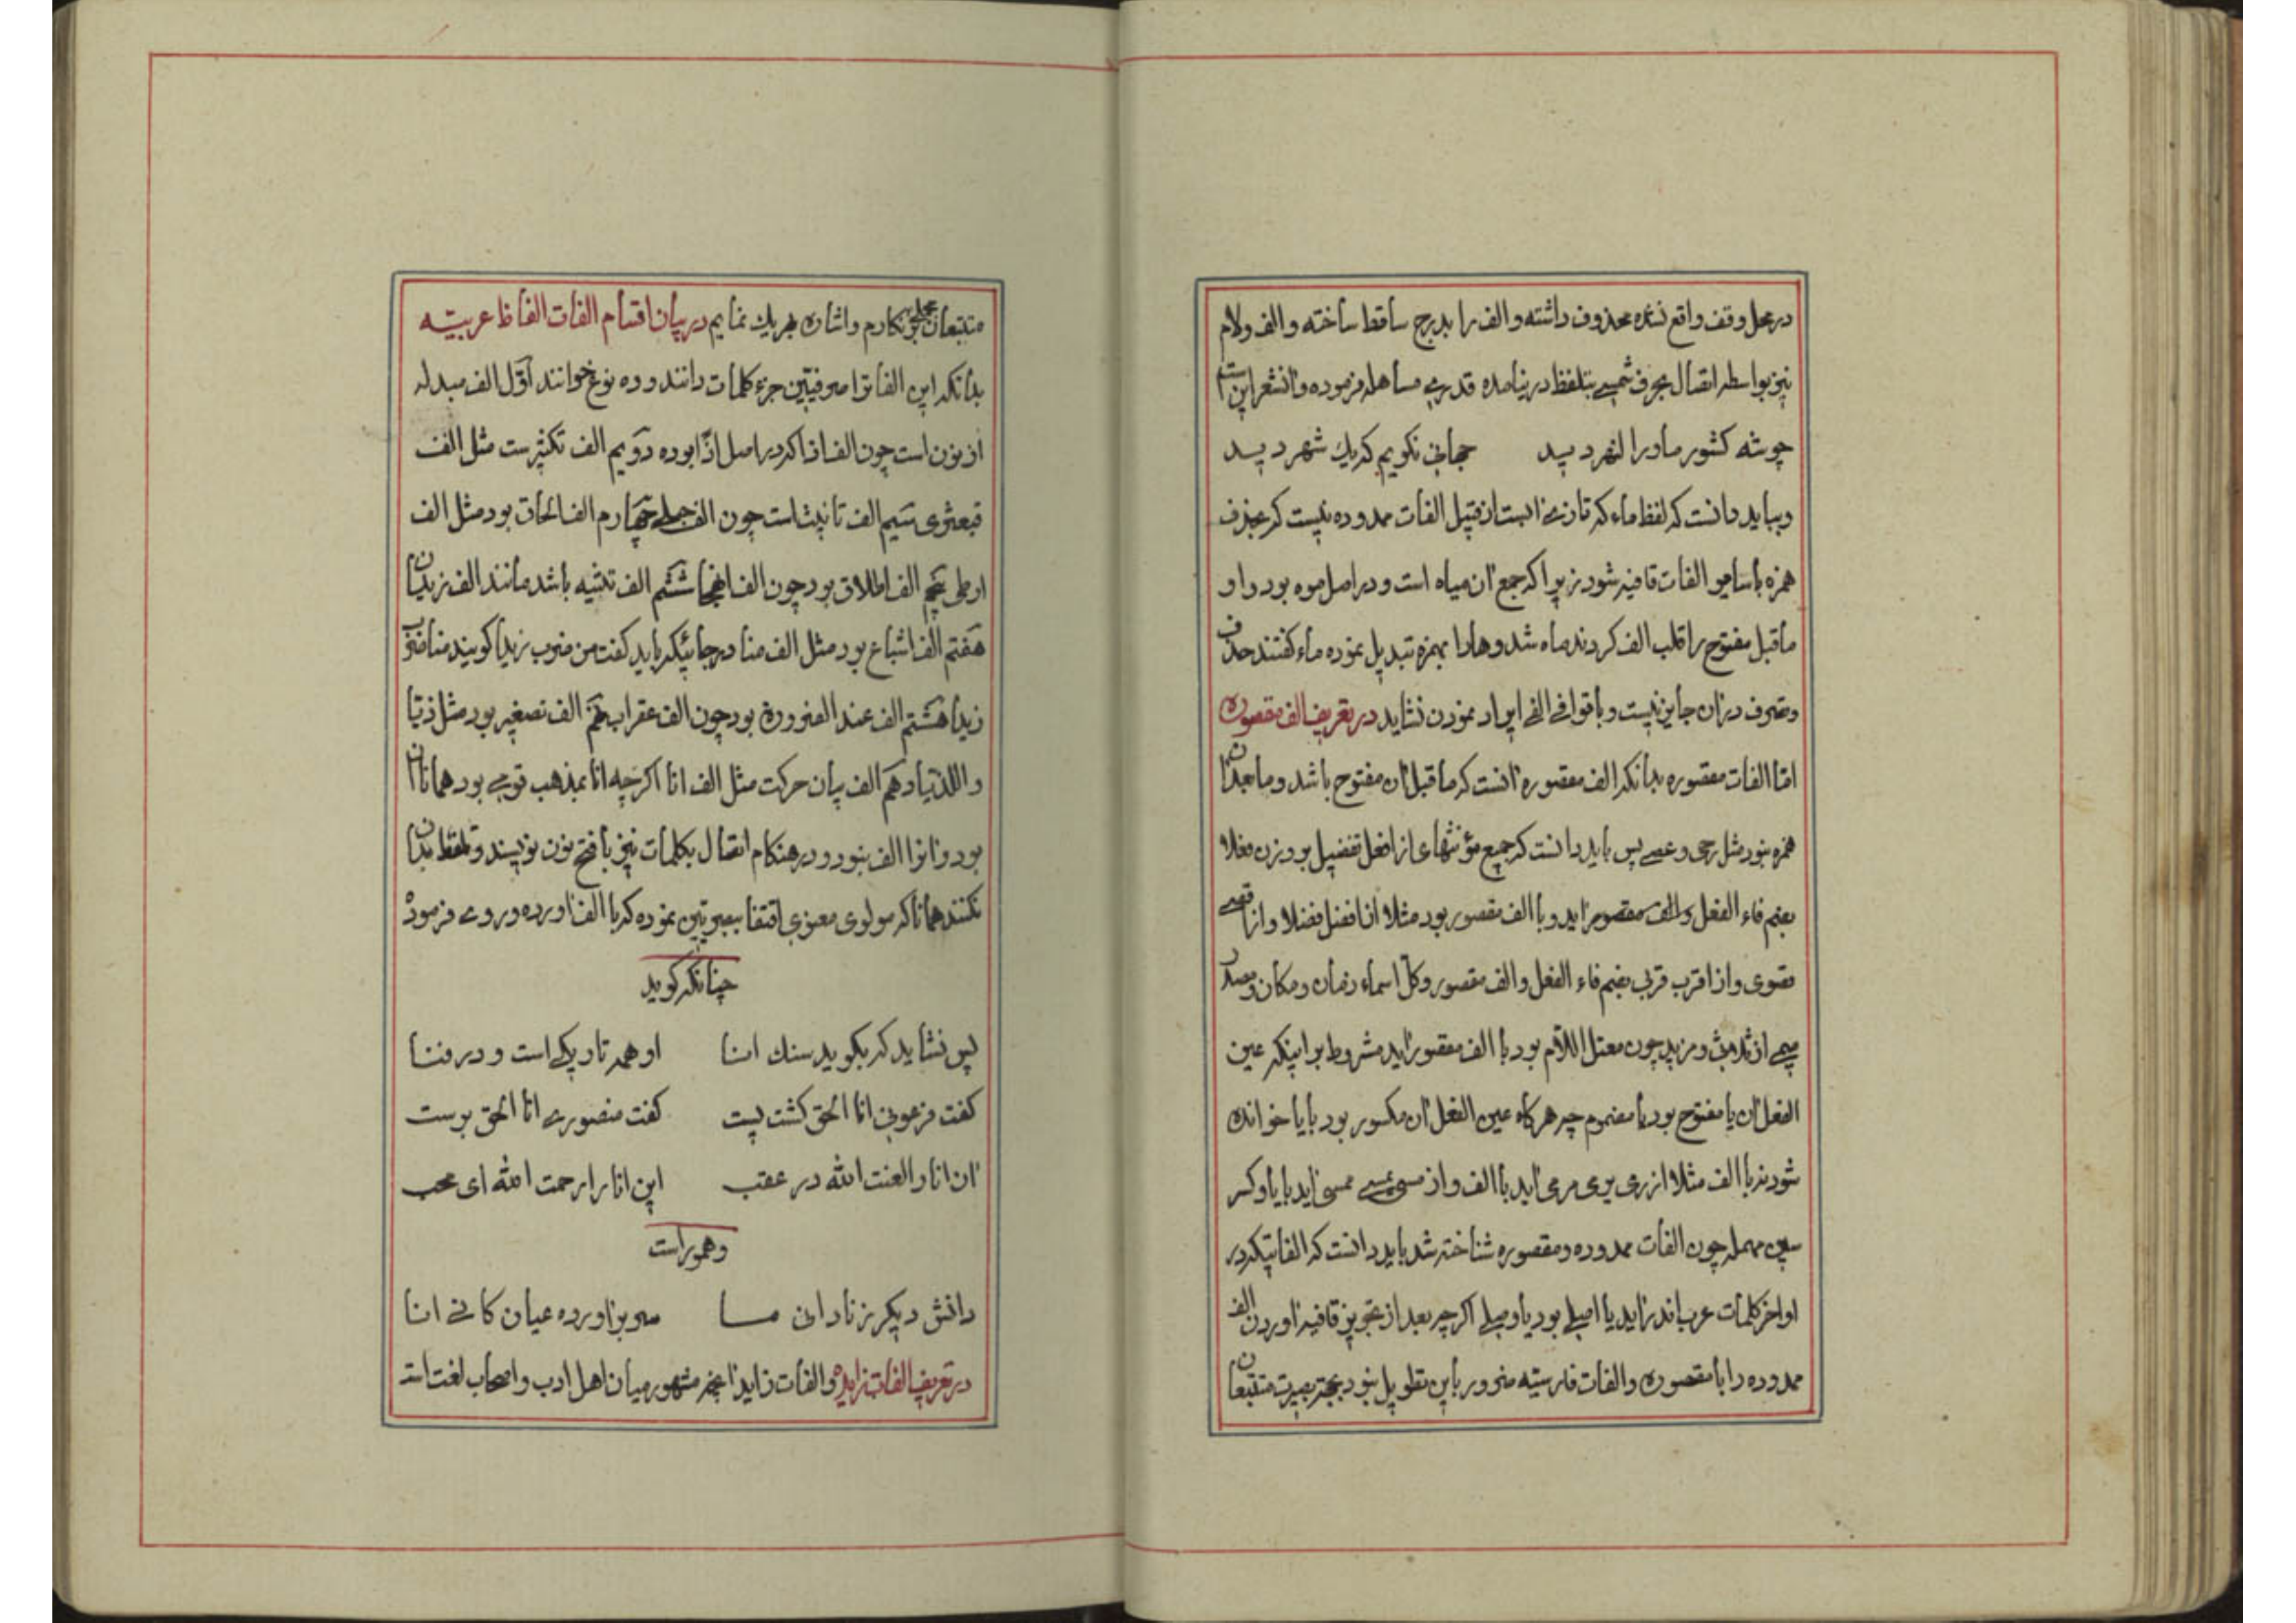 در محل وقف واقع نشده محذوف داشته و الف را بدرج ساقط ساخته و الف و لام
نیز بواسطه اتصال بحرف شمسی بتلفظ در نیامده قدری مساهله فرموده و آنشعر این است
چو شه کشور ماورا النهر دید جهانی نگویم که یك شهر دید
و بباید دانست که لفظ ماء که تازی آبست از قبیل الفات ممدوده نیست که بحذف
همزه با سایر الفات قافیه شود زیرا که جمع آن میاه است و در اصل موه بود واو
ماقبل مفتوح را قلب الف کردند ماه شد و ها را بهمزه تبدیل نموده ماء گفتند حذف
و تصرف در آن جایز نیست و با قوافی الفی ایراد نمودن نشاید در تعریف الف مقصوره
امّا الفات مقصوره بدانکه الف مقصوره آنست که ماقبل آن مفتوح باشد و ما بعد آن
همزه نبود مثل رحی و عصی پس باید دانست که جمیع مؤنثهای از افعل تفضیل بوزن فعلا
بضم فاء الفعل و الف مقصور آید و با الف مقصور بود مثلا از افضل فضلا و از اقصی
قصوی و از اقرب قربی بضم فاء الفعل و الف مقصور و کلّ اسماء زمان و مکان و مصدر
میمی از ثلاثی و مزید چون معتل اللّام بود با الف مقصور آید مشروط بر اینکه عین
الفعل آن یا مفتوح بود یا مضموم چه هرگاه عین الفعل آن مکسور بود با یا خوانده
شود نه با الف مثلا از رمی یرمی مرمی آید با الف و از مسی یمسی ممسی آید با یا و کسر
سین مهمله چون الفات ممدوده و مقصوره شناخته شد باید دانست که الفاتیکه در
اواخر کلمات عرب اند زاید یا اصلی بود یا وصلی اگر چه بعد از تجویز قافیه آوردن الف
ممدوده را با مقصوره و الفات فارسیّه ضرور باین تطویل نبود بجهة بصیرت متتبعان
متتبعان مجملی بنکارم و اشاره بهریك نمایم در بیان اقسام الفات الفاظ عربیّه
بدانکه این الفاترا صرفیّین جزء کلمات دانند و ده نوع خوانند اوّل الف مبدله
از نون است چون الف اذا که در اصل اذًا بوده دوّیم الف تکثیرست مثل الف
قبعثری سیّم الف تانیث است چون الف حبلی چهارم الف الحاق بود مثل الف
ارطی پنجم الف اطلاق بود چون الف انجما ششم الف تثنیه باشد مانند الف زیدان
هفتم الف اشباع بود مثل الف منا در جائیکه باید گفت من ضرب زیدا گویند منا ضرب
زیدا هشتم الف عند الضرورة بود چون الف عقراب نهم الف تصغیر بود مثل ذیّا
و اللّذیّا دهم الف بیان حرکت مثل الف انا اگرچه انا بمذهب قومی بود همانا ان
بود و آنرا الف نبود و در هنکام اتصال بکلمات نیز با فتح نون نویسند و تلفظ بدان
نکنند همانا که مولوی معنوی اقتفا ببصریّین نموده که با الف آورده و روی فرموده
چنانکه گوید
پس نشاید که بگوید سنك انا او همه تاریکی است و در فنا
گفت فرعونی انا الحق گشت پست گفت منصوری انا الحق برست
آن انا را لعنت الله در عقب این انا را رحمت الله ای محب
و هموراست
دانش دیگر ز نادانی ما سر برآورده عیان کانی انا
در تعریف الفات زایده و الفات زاید آنچه مشهور میان اهل ادب و اصحاب لغت است